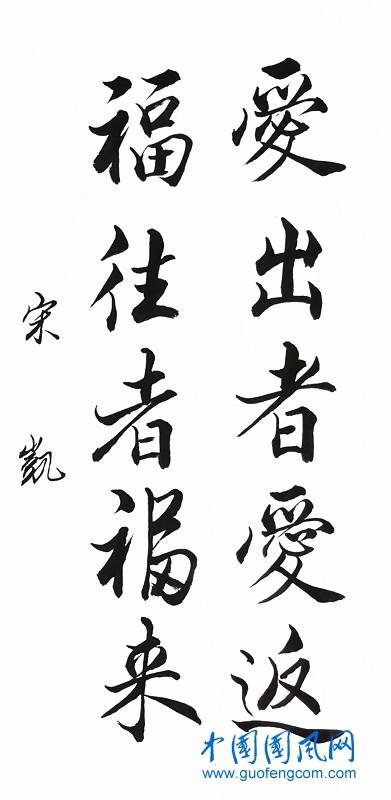 愛出者愛返
福往者福来
宋凱
中国國风网
www.guofengcom.com